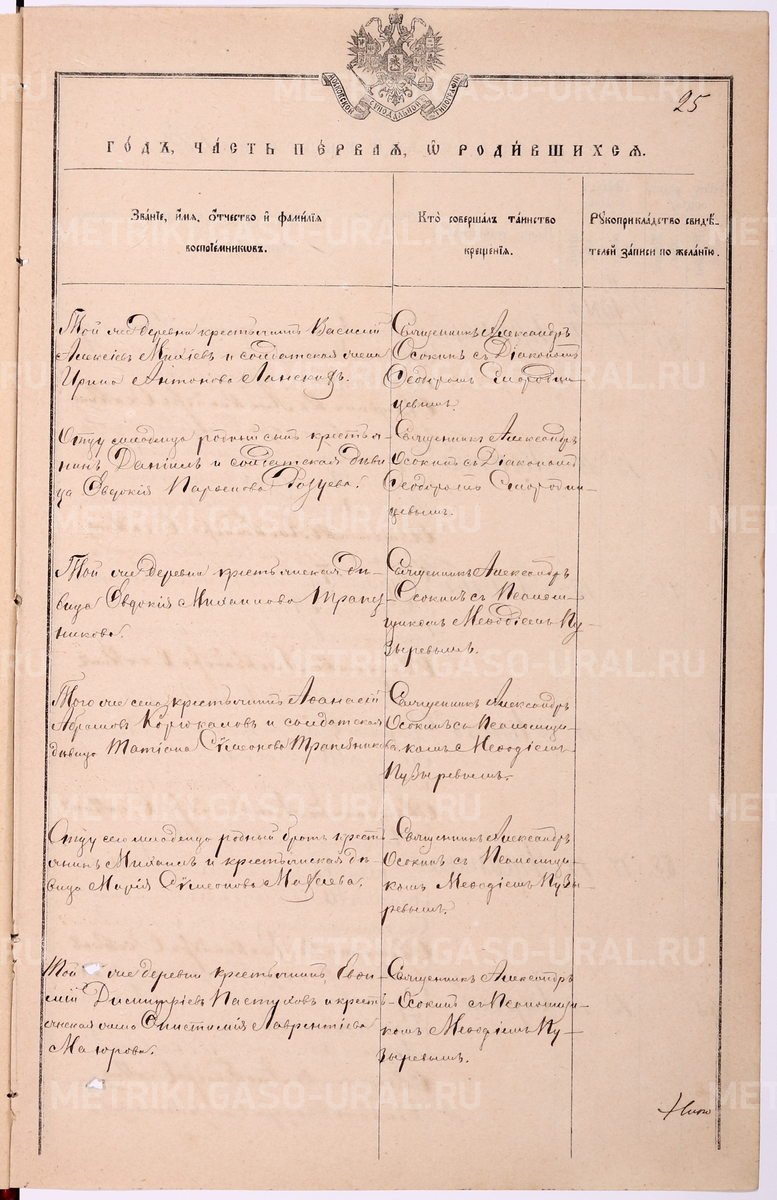 МОСКОВСКОЙ СѴНОДАЛЬНОЙ ТИПОГРАФІИ
25
ГОДЪ, ЧАСТЬ ПЕРВАЯ, Ѡ РОДИВШИХСЯ.
Званіе, имя, отчество и фамилія
воспріемниковъ.
Кто совершалъ таинство
крещенія.
Рукоприкладство свидѣ-
телей записи по желанію.
Той же деревни крестьянинъ Василій
Алексѣевъ и солдатская жена
Ирина Антонова
Священникъ Александръ
Осокинъ съ Діакономъ
Ѳеодоромъ Смородин-
цевымъ.
Отцу младенца родный сынъ крестья-
нинъ Даніилъ и солдатская дѣви-
ца Евдокія Парѳенова
Священникъ Александръ
Осокинъ съ Діакономъ
Ѳеодоромъ Смородин-
цевымъ.
Той же деревни крестьянская дѣ-
вица Евдокія Михаилова Трапез-
никова.
Священникъ Александръ
Осокинъ съ Псаломщ-
щикомъ Меѳодіемъ Пу-
зыревымъ.
Того же села крестьянинъ Аѳанасій
Абрамовъ Корюкаловъ и солдатская
дѣвица Татіана Сѵмеонова Трапезникова.
Священникъ Александръ
Осокинъ съ Псаломщи-
комъ Меѳодіемъ
Пузыревымъ.
Отцу сего младенца родный братъ крестья-
нинъ Михаилъ и крестьянская дѣ-
вица Марія Сѵмеонова
Священникъ Александръ
Осокинъ съ Псаломщи-
комъ Меѳодіемъ Пузы-
ревымъ.
Той же деревни крестьянинъ Евѳи-
мій Димитріевъ Пастуховъ и кресть-
янская жена Епистимія Лаврентіева
Маюрова.
Священникъ Александръ
Осокинъ съ Псаломщи-
комъ Меѳодіемъ Пу-
зыревымъ.
METRIKI.GASO-URAL.RU